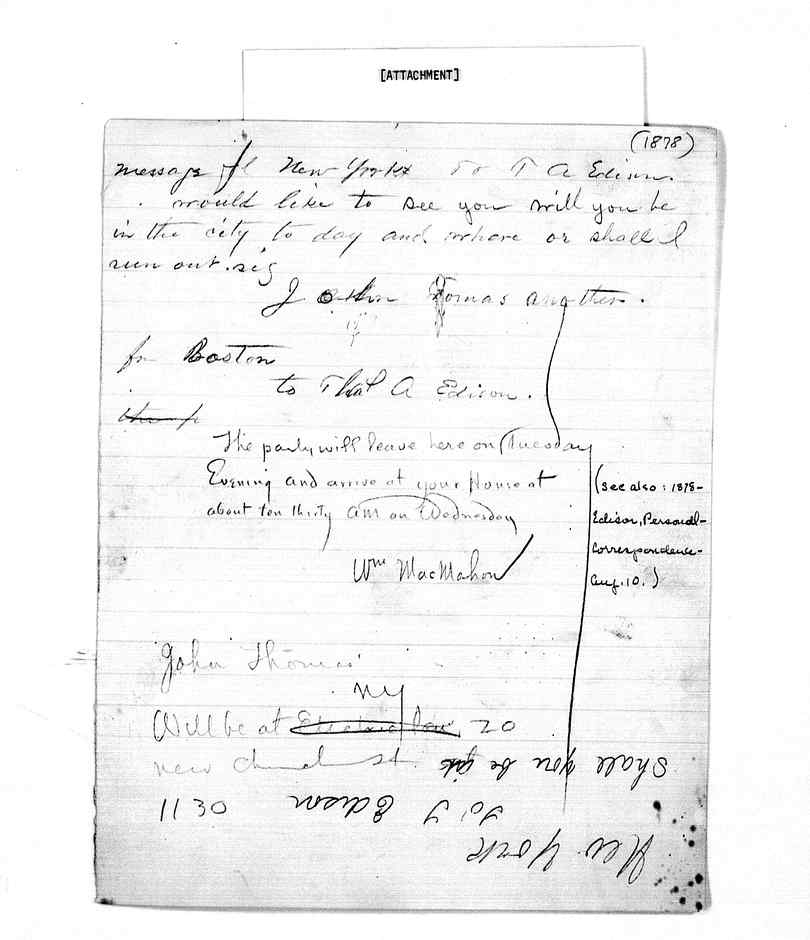 [ATTACHMENT]
(1878)
message New York to T A Edison.
would like to see you will you be
in the city to day and whare or shall I
run out. sig
John Tomas another.
fm Boston
to A Edison.
The party will leave here on Tuesday
Evening and arrive at your House at
about ten thirty am on Wednesday
Wm MacMahon
(see also: 1878-
Edison, Personal-
Correspondence-
Aug. 10.)
John Thomas
NY
Will be at 20
new church st
11 30
New York
To T Edison
Shall you be